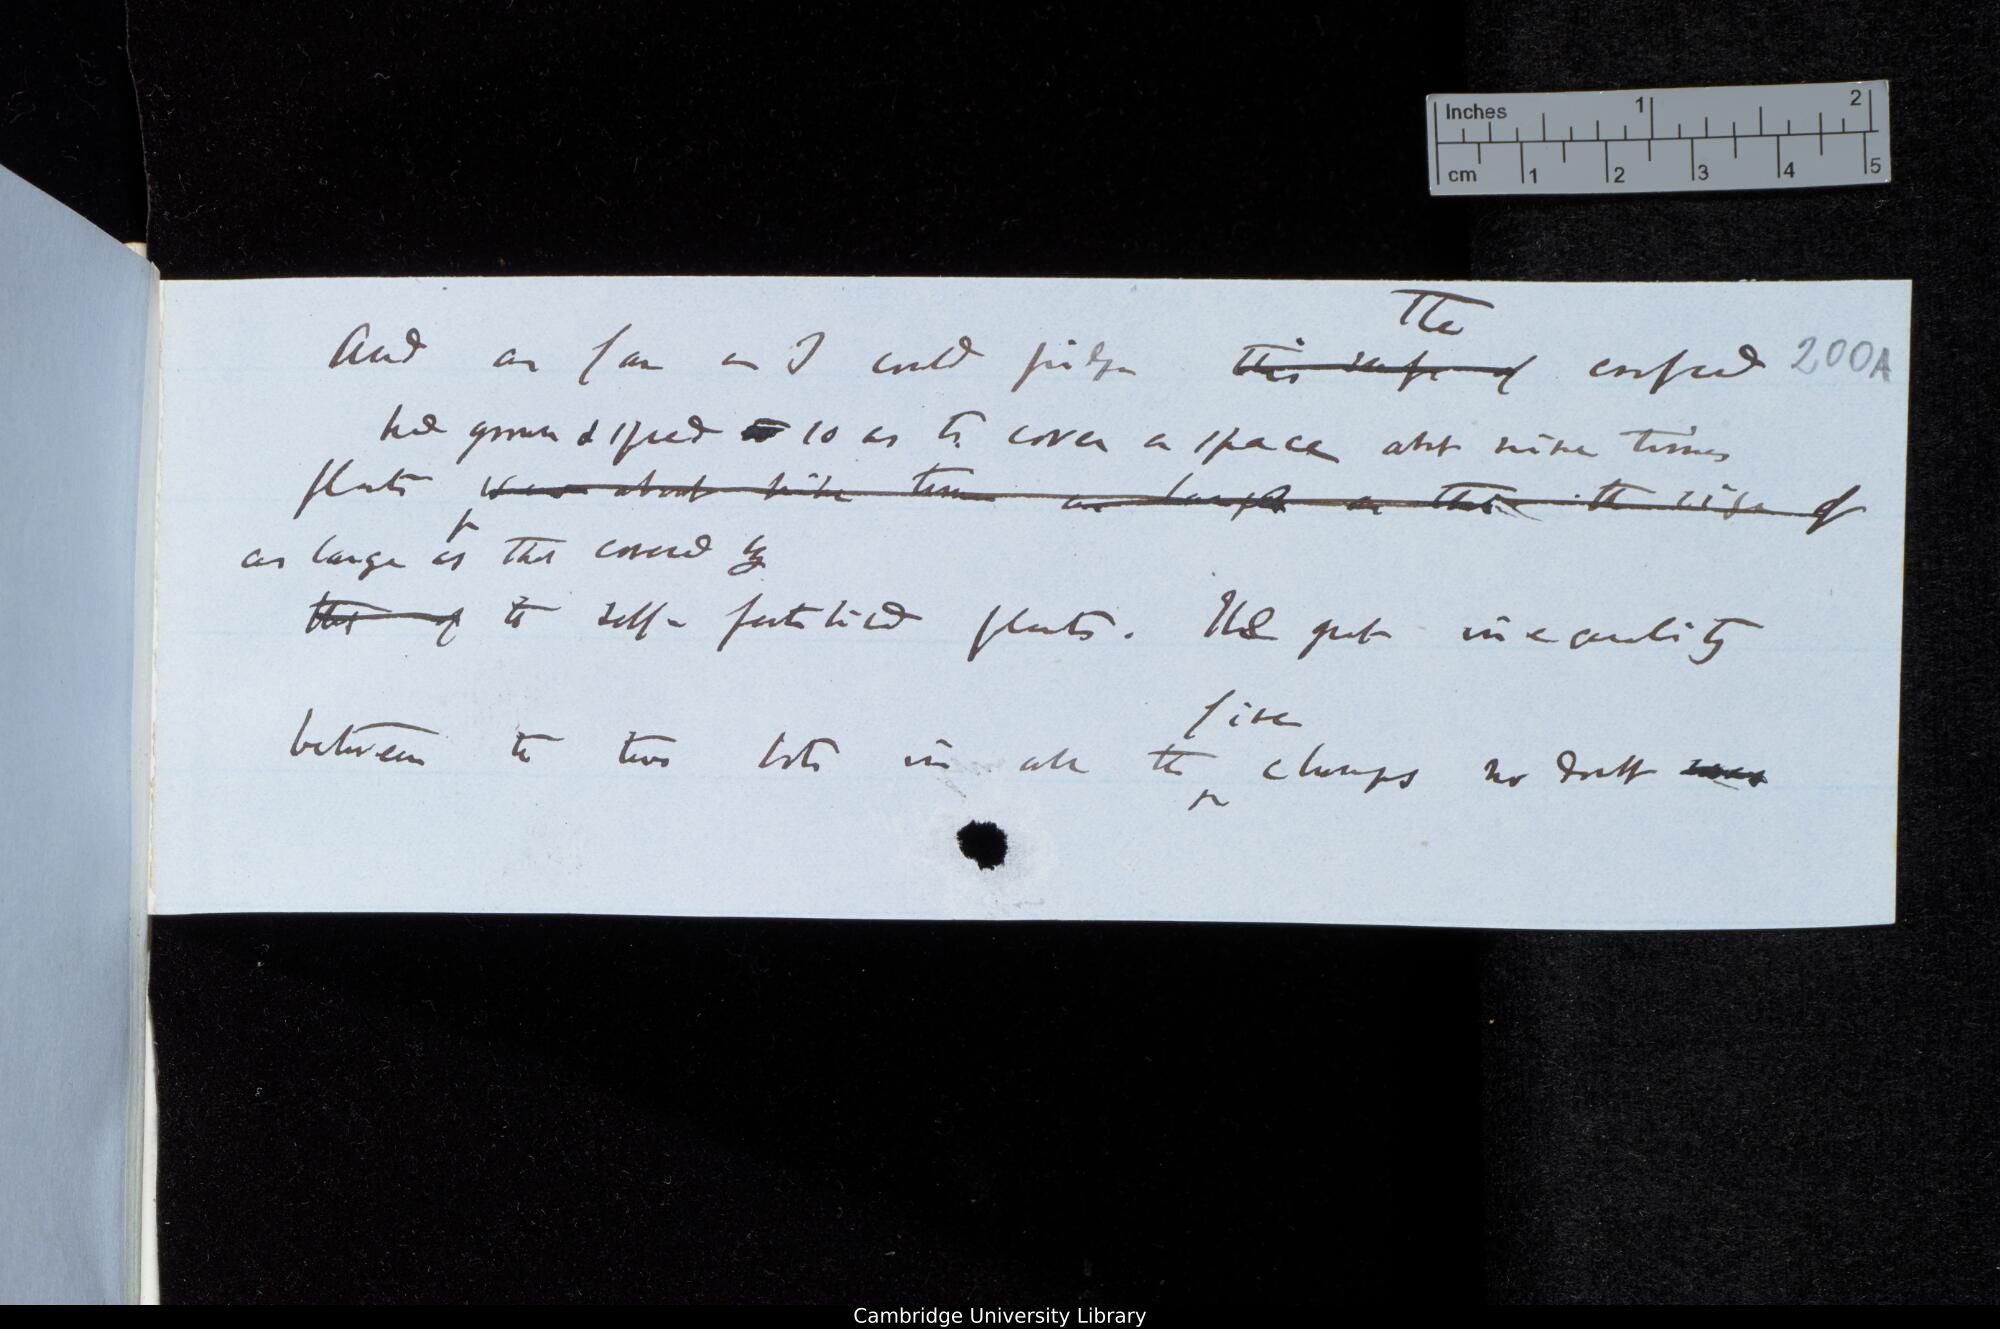 Inches 1 2
cm 1 2 3 4 5
The
And as far as I could judge this shape of crossed 200A
had grown & spread so as to cover a space abt nine times
plants was about nine times as large as that the size of
as large as that covered by
that of the self-fertilised plants. The great inequality
five
between the two lots in all the clumps no doubt
Cambridge University Library